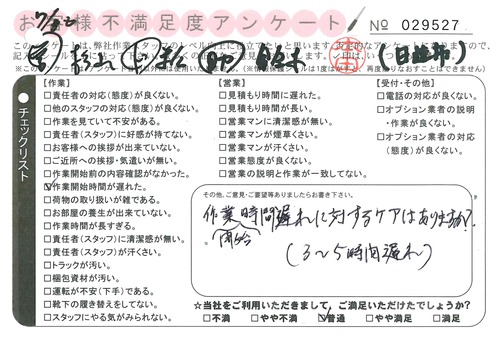 お客様不満足度アンケート
№ 029527
(日進市)
チェックリスト
【作業】
□責任者の対応(態度)が良くない。
□他のスタッフの対応(態度)が良くない。
□作業を見ていて不安がある。
□責任者(スタッフ)に好感が持てない。
□お客様への挨拶が出来ていない。
□ご近所への挨拶・気遣いが無い。
□作業開始前の内容確認がなかった。
☑作業開始時間が遅れた。
□荷物の取り扱いが雑である。
□お部屋の養生が出来ていない。
□作業時間が長すぎる。
□責任者(スタッフ)に清潔感が無い。
□責任者(スタッフ)が汗くさい。
□トラックが汚い。
□梱包資材が汚い。
□運転が不安(下手)である。
□靴下の履き替えをしてない。
□スタッフにやる気がみられない。
【営業】
□見積もり時間に遅れた。
□見積もり時間が長い。
□営業マンに清潔感が無い。
□営業マンが煙草くさい。
□営業マンが汗くさい。
□営業態度が良くない。
□営業の説明と作業が一致してない。
【受付・その他】
□電話の対応が良くない。
□オプション業者の説明
・作業が良くない。
□オプション業者の対応
(態度)が良くない。
その他、ご意見・ご要望等ありましたらお書き下さい。
作業時間遅れに対するケアはありますか?
開始
(3~5時間遅れ)
☆当社をご利用いただきまして、ご満足いただけたでしょうか?
□不満 □やや不満 ☑普通 □やや満足 □満足